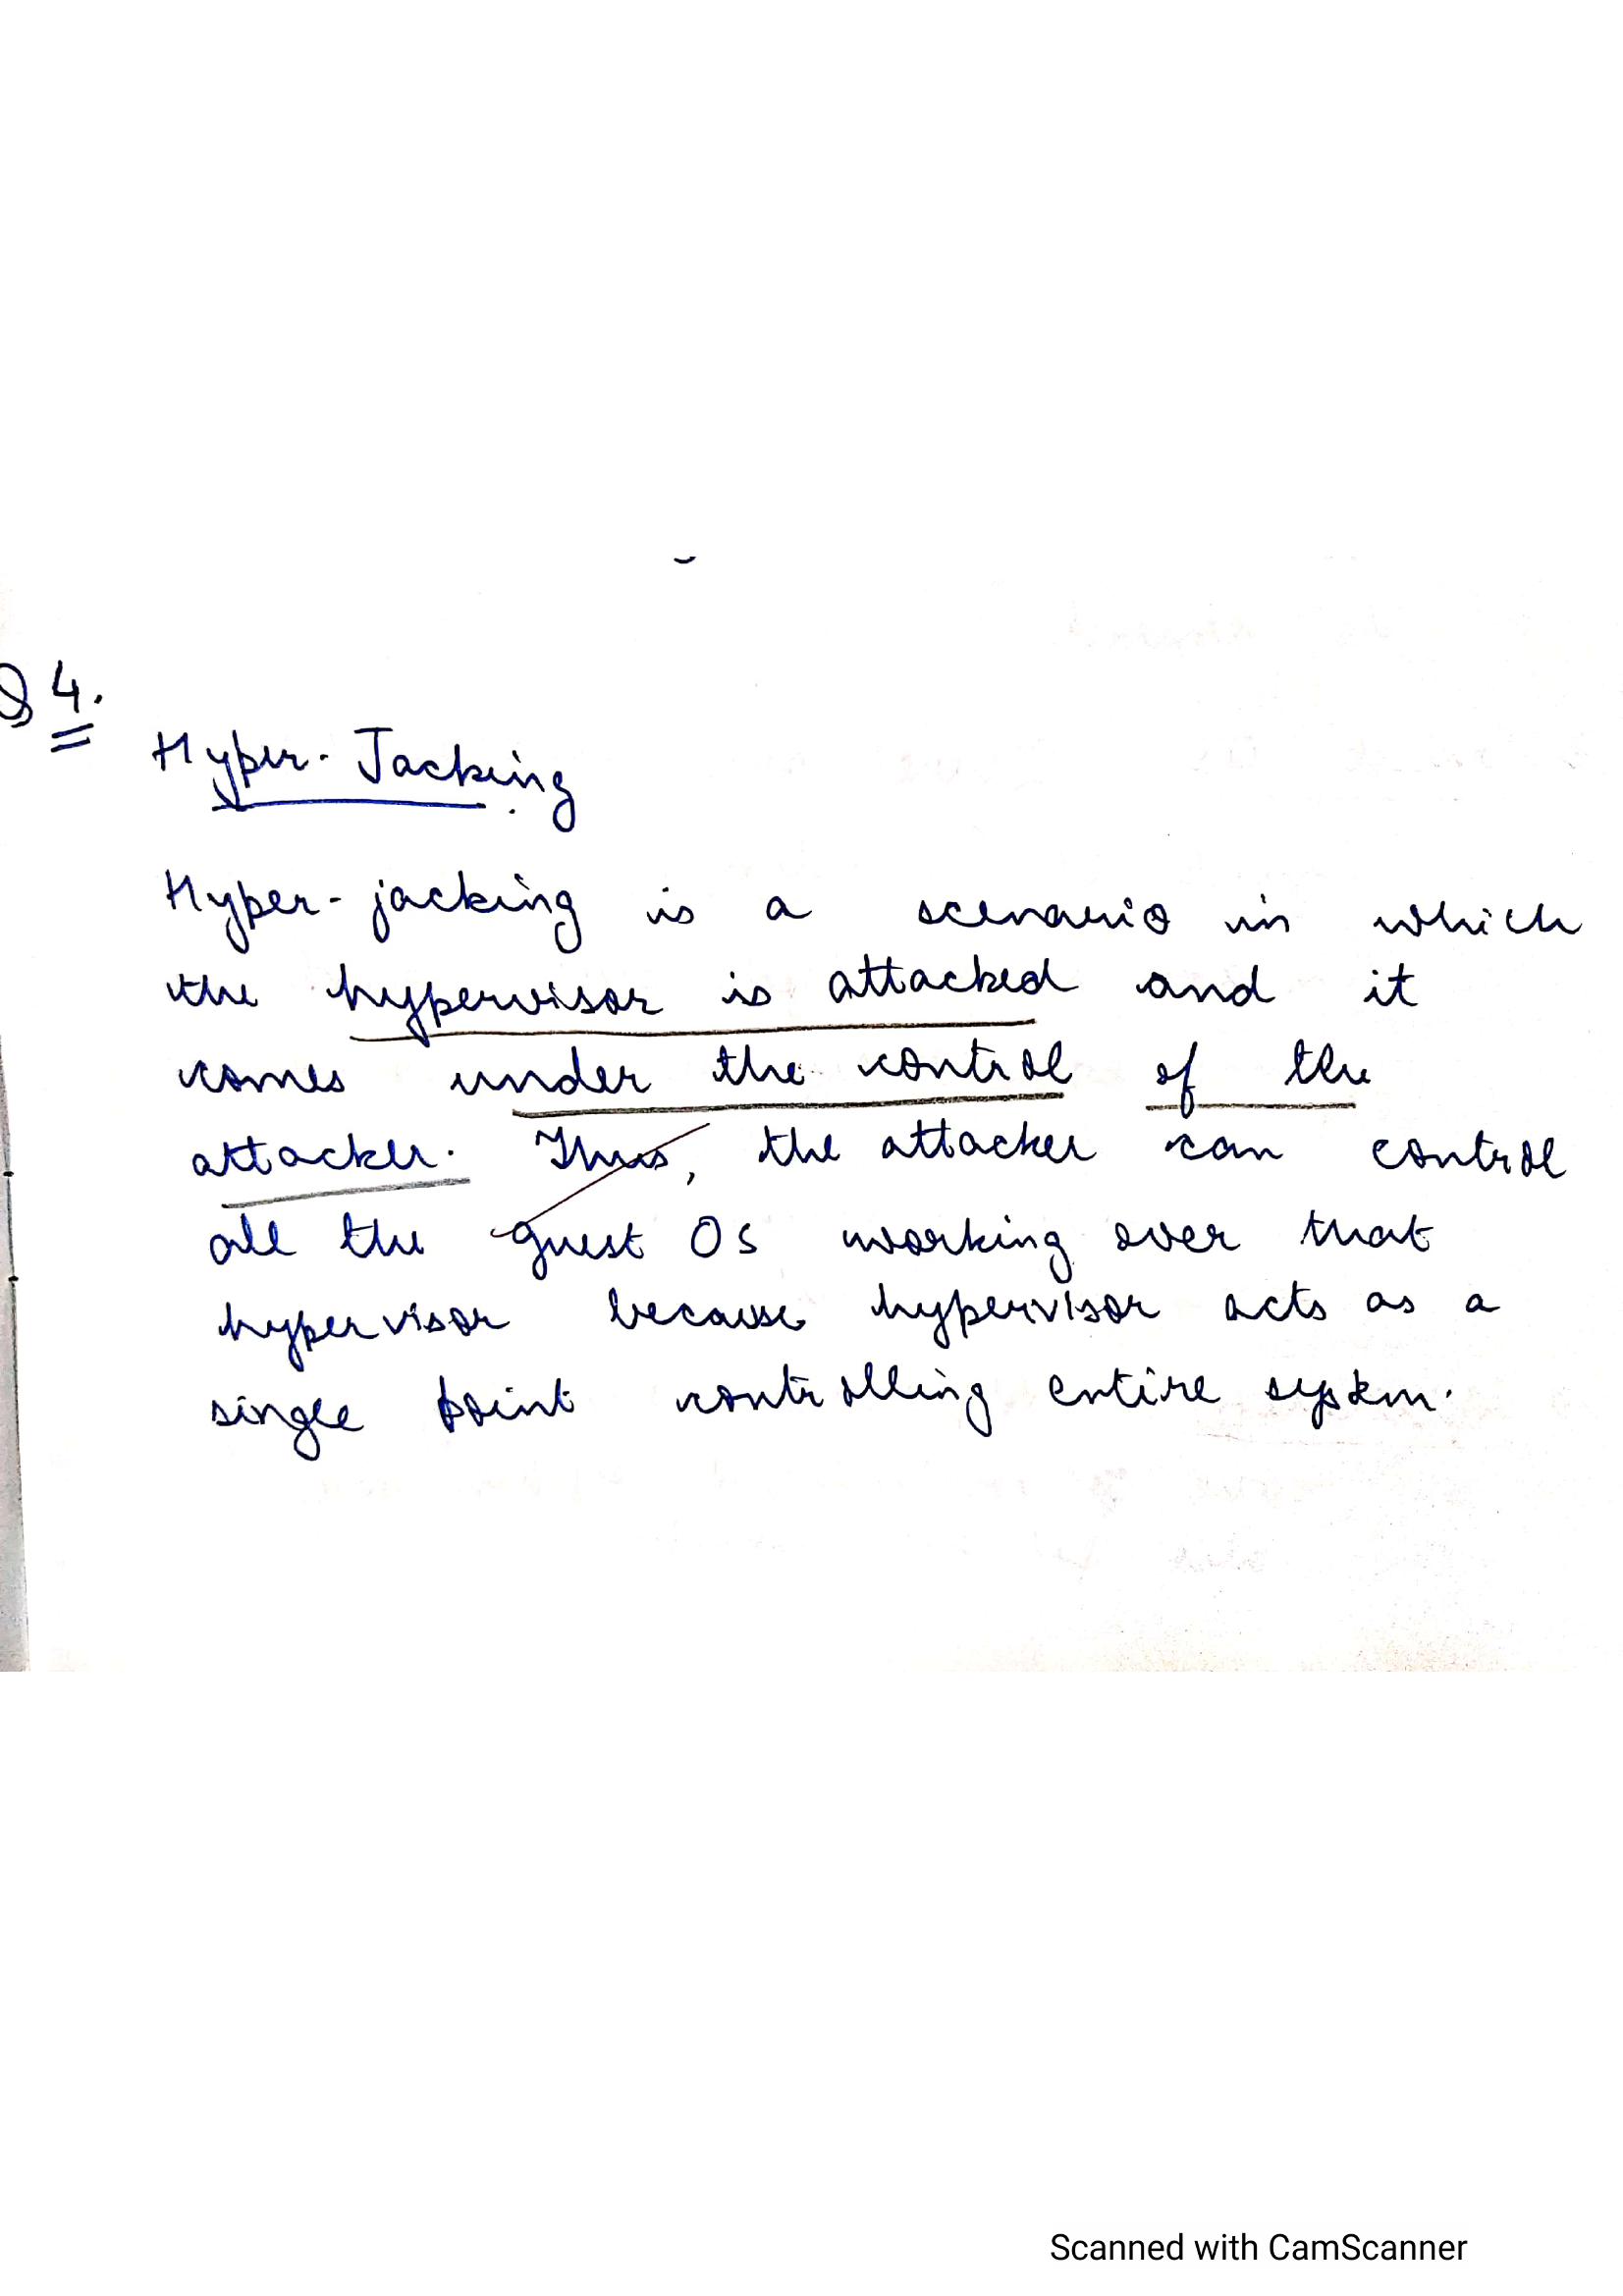 Q 4.
Hyper-Jacking
Hyper-jacking is a scenario in which
the hypervisor is attacked and it
comes under the control of the
attacker. Thus, the attacker can control
all the guest OS working over that
hypervisor because hypervisor acts as a
single point controlling entire system.
Scanned with CamScanner